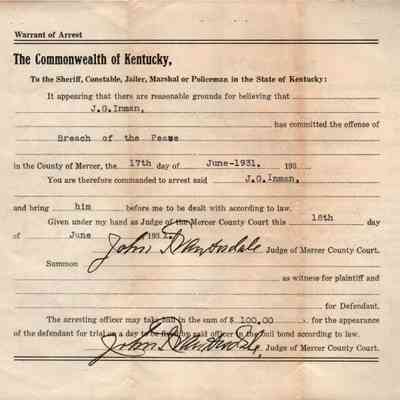 Warrant of Arrest
The Commonwealth of Kentucky,
To the Sheriff, Constable, Jailer, Marshal or Policeman in the State of Kentucky:
It appearing that there are reasonable grounds for believing that
J.G.Inman,
has committed the offense of
Breach of the Peace
in the County of Mercer, the 17th day of June-1931. 193
You are therefore commanded to arrest said J.G.Inman,
and bring him before me to be dealt with according to law.
Given under my hand as Judge of the Mercer County Court this 18th day
of June 1931. John Judge of Mercer County Court.
Summon
as witness for plaintiff and
for Defendant.
The arresting officer may take bail in the sum of $ 100.00 for the appearance
of the defendant for trial on a day to be fixed by said officer in the bail bond according to law.
John Judge of Mercer County Court.